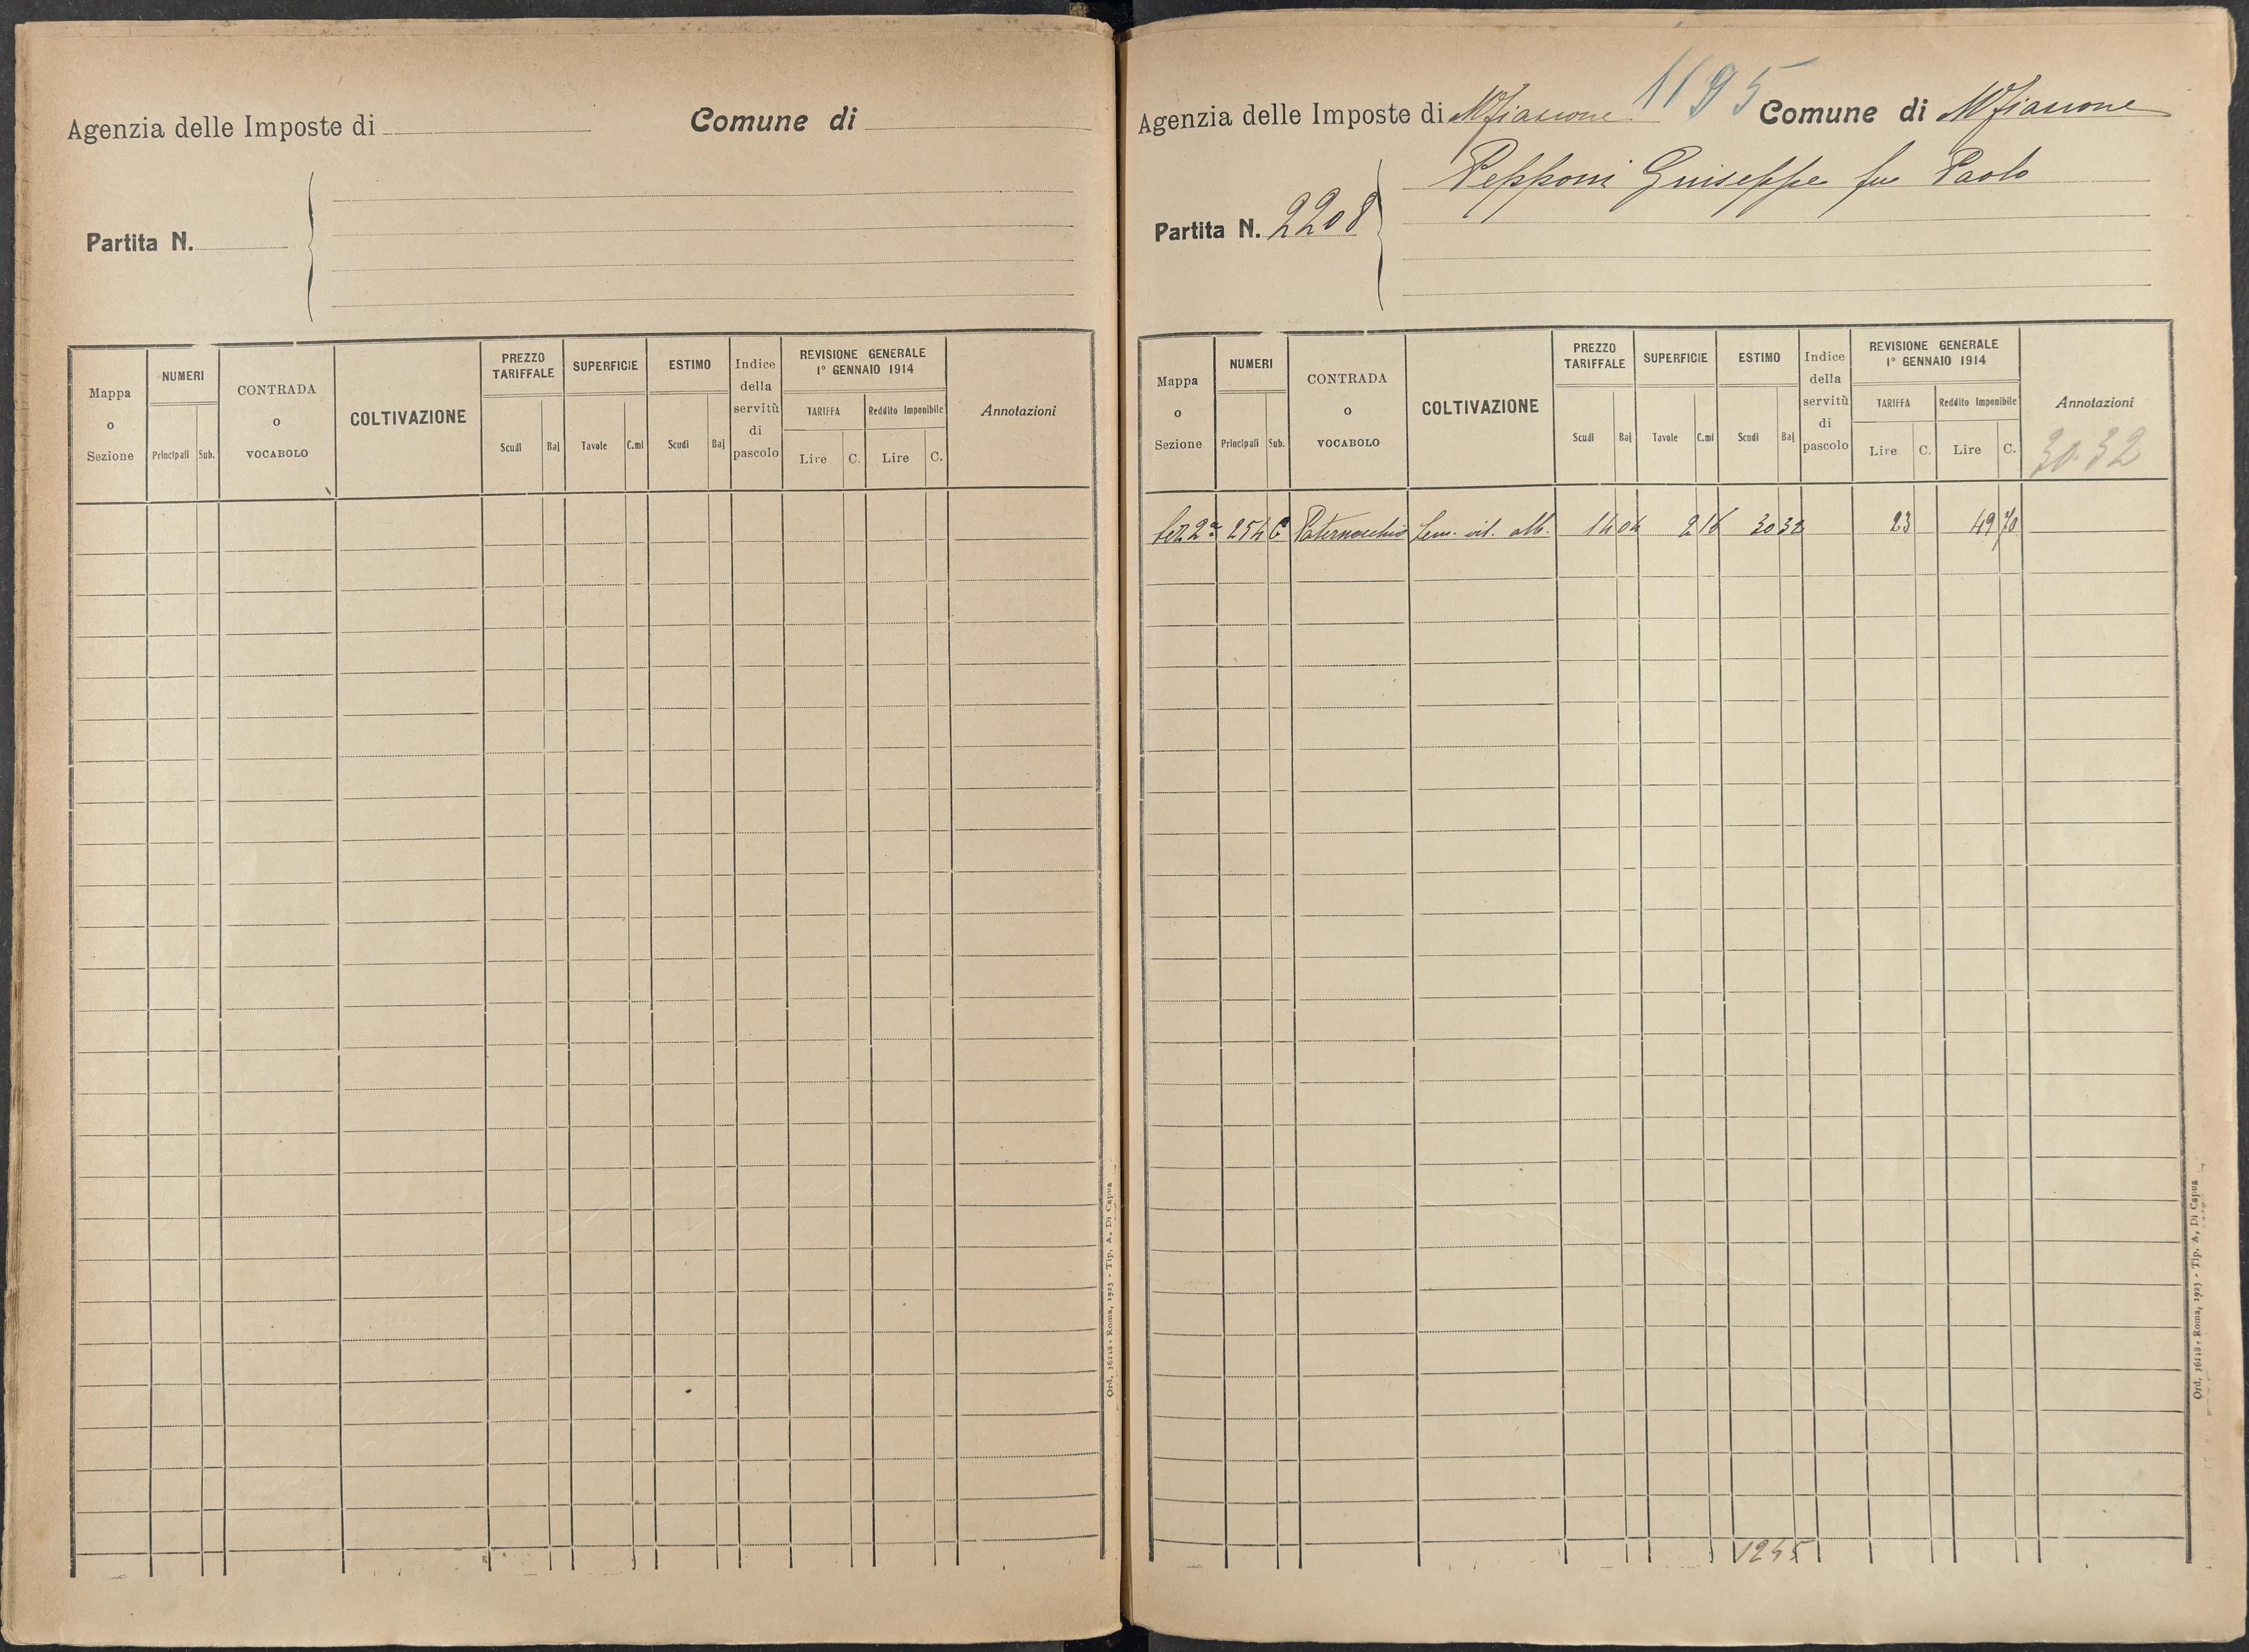 Agenzia delle Imposte di Comune di
Partita N.
Mappa o Sezione NUMERI Principali Sub. CONTRADA o VOCABOLO COLTIVAZIONE PREZZO TARIFFALE Scudi Baj SUPERFICIE Tavole C.mi ESTIMO Scudi Baj Indice della servitù di pascolo REVISIONE GENERALE 1° GENNAIO 1914 TARIFFA Lire C. Reddito Imponibile Lire C. Annotazioni
Ord. 16118 - Roma, 1923 - Tip. A. Di Capua
1195
Agenzia delle Imposte di Mfiascone Comune di Mfiascone
Pepponi Giuseppe fu Paolo
Partita N. 2208
Mappa o Sezione NUMERI Principali Sub. CONTRADA o VOCABOLO COLTIVAZIONE PREZZO TARIFFALE Scudi Baj SUPERFICIE Tavole C.mi ESTIMO Scudi Baj Indice della servitù di pascolo REVISIONE GENERALE 1° GENNAIO 1914 TARIFFA Lire C. Reddito Imponibile Lire C. Annotazioni
30.32
Sez 2ª 254 Paternocchio Sem. vit. alb. 14 04 2 16 30 32 23 49 70
1245
Ord. 16118 - Roma, 1923 - Tip. A. Di Capua